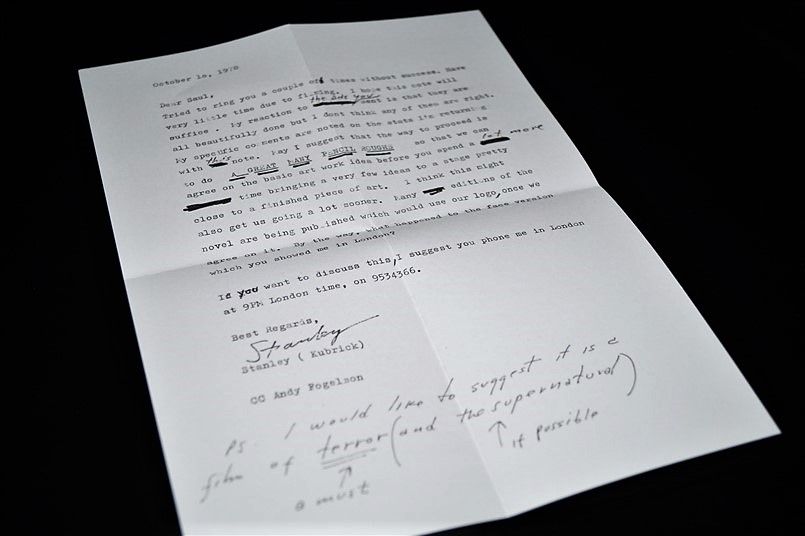 October 1o,
Dear Saul,
Tried to ring you a couple of times without success. Have
very little time due to filming. I hope this note will
suffice . My reaction to the art you sent is that they are
all beautifully done but I dont think any of them are right.
My specific comments are noted on the stats I'm returning
with this note. May I suggest that the way to proceed is
to do A GREAT MANY PENCIL ROUGHS so that we can
agree on the basic art work idea before you spend a lot more
time bringing a very few ideas to a stage pretty
close to a finished piece of art. I think this might
also get us going a lot sooner. Many editions of the
novel are being published which would use our logo, once we
agree on it. By the way, what happened to the face version
which you showed me in London?
If you want to discuss this, I suggest you phone me in London
at 9PM London time, on 9534366.
Best Regards,
Stanley
Stanley ( Kubrick)
CC Andy Fogelson
PS I would like to suggest it is a
film of terror (and the supernatural)
↑ a must
↑ if possible